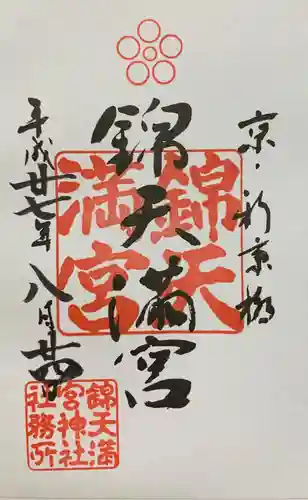 京・新京極
錦天満宮
平成廿七年八月廿四
錦天
満宮
錦天満
宮神社
社務所